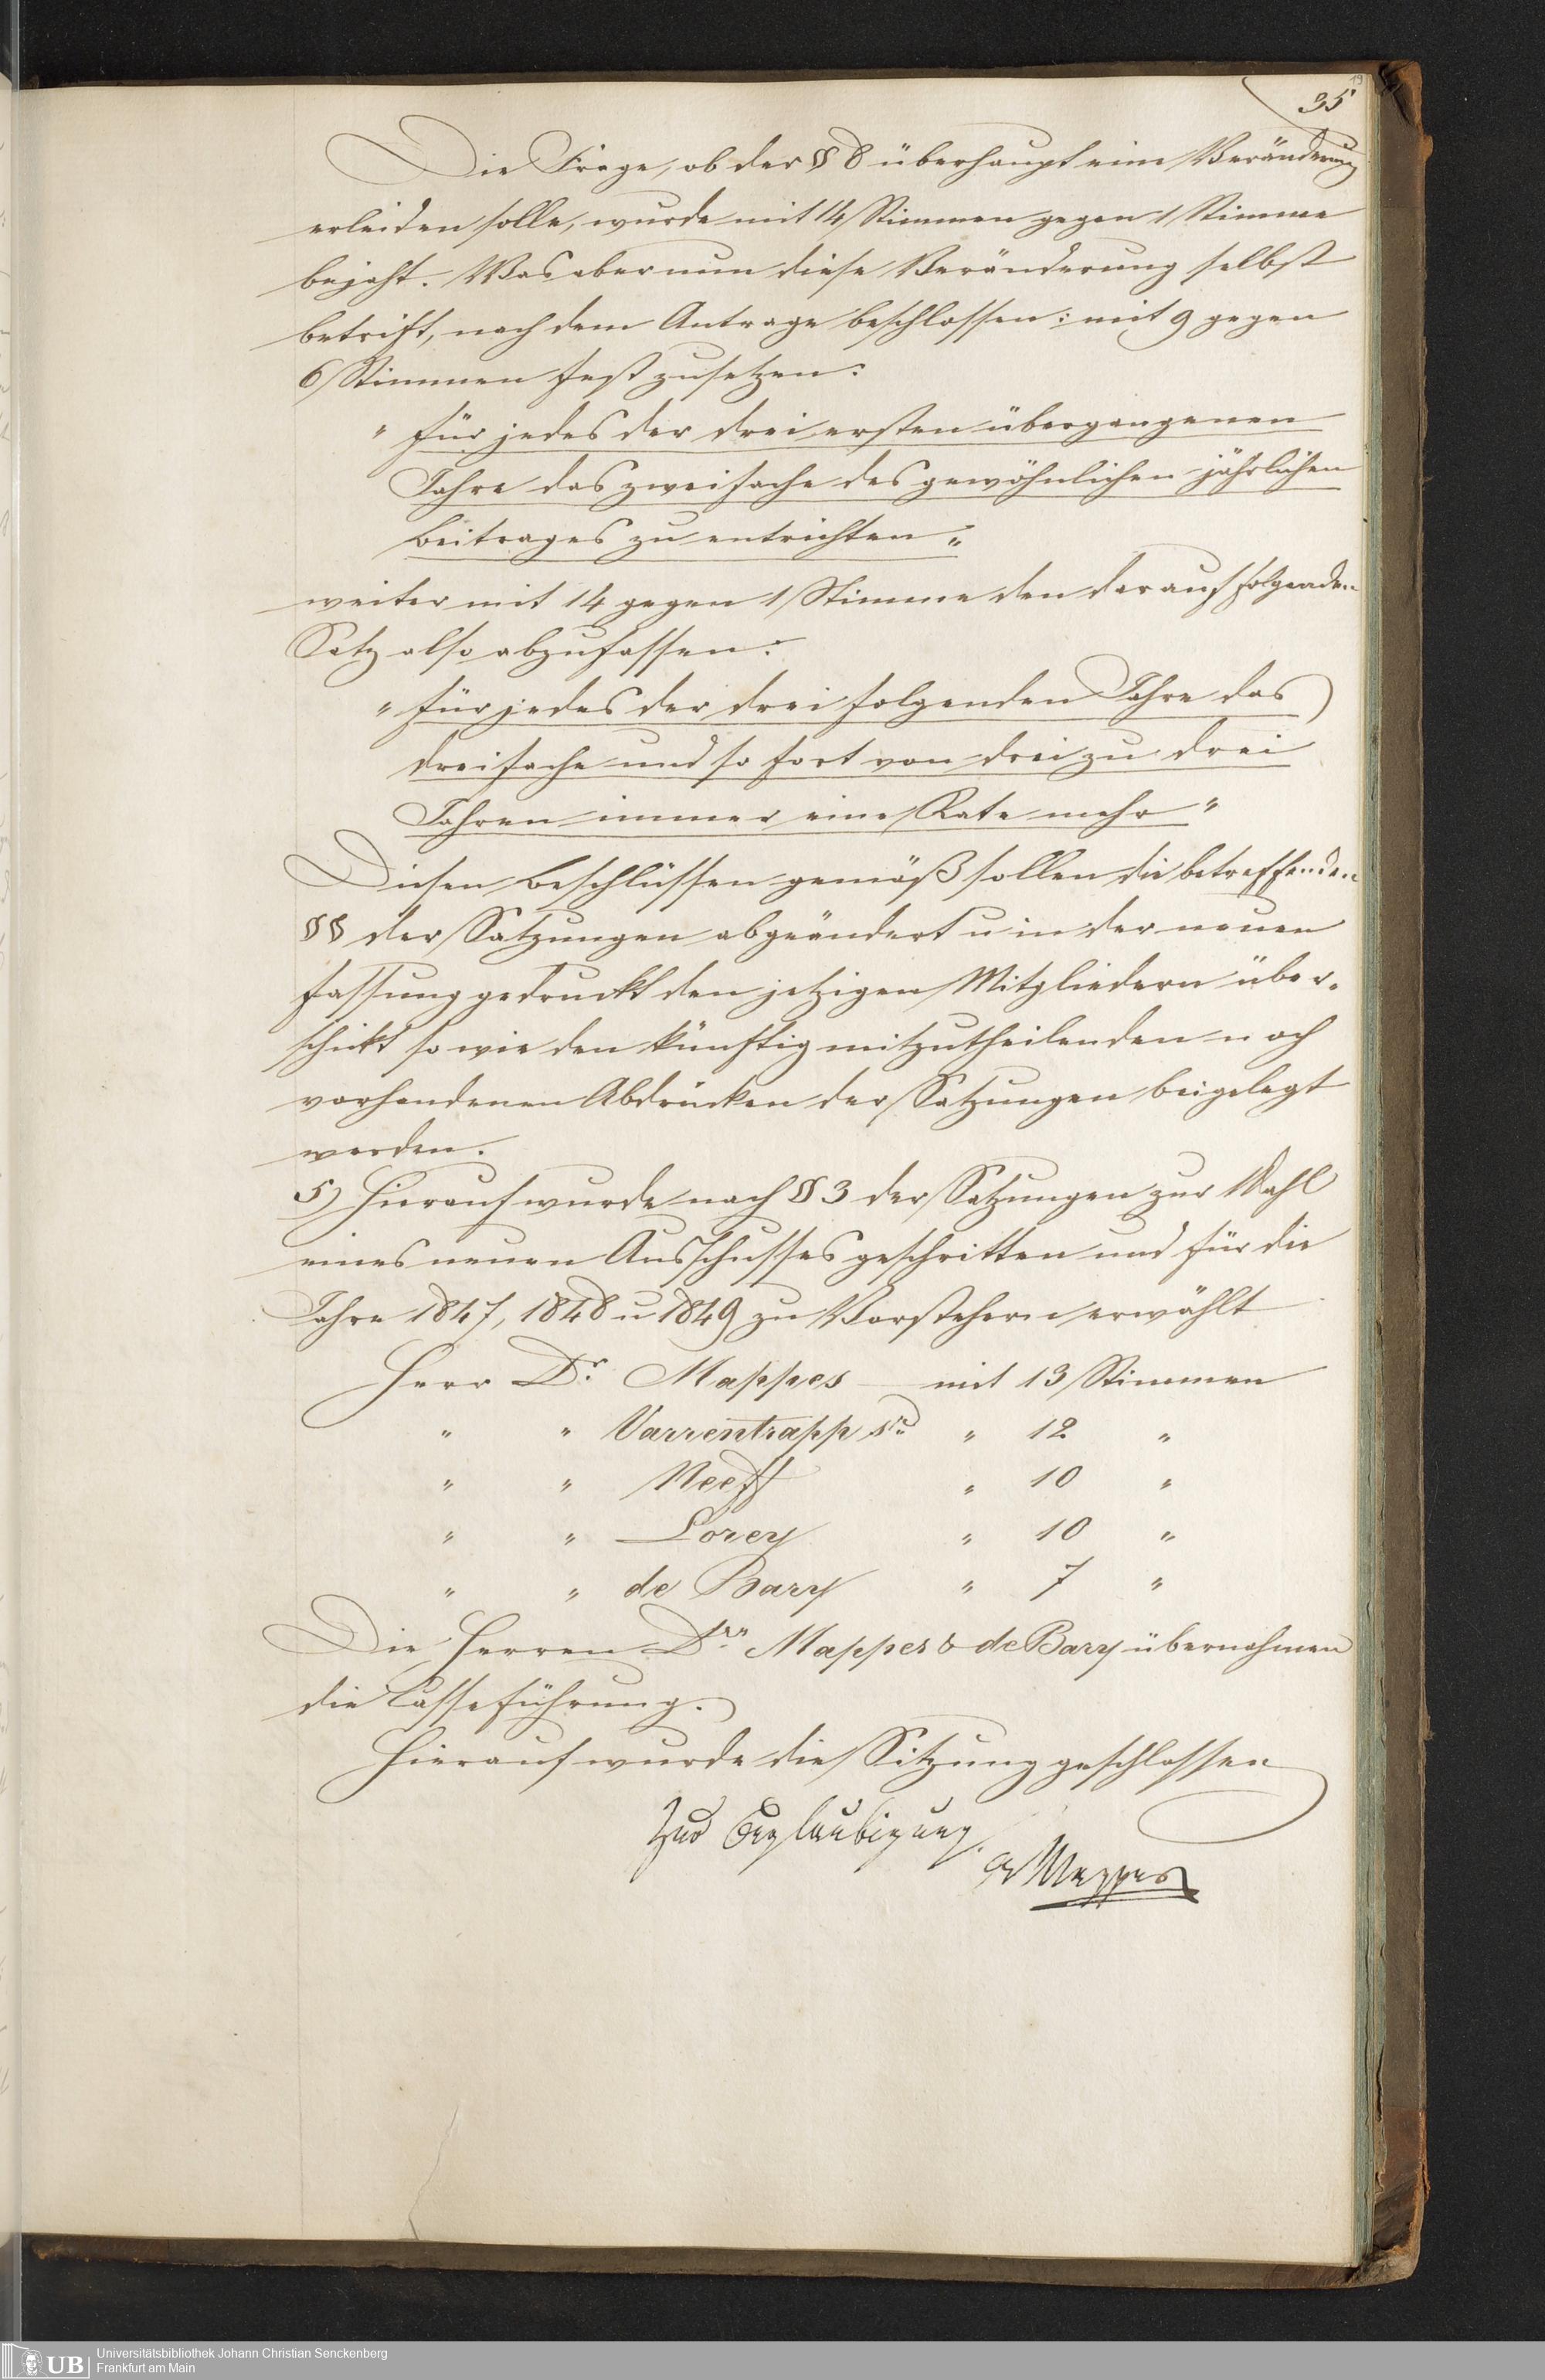 35
Die Frage, ob der § 8 überhaupt eine Veränderung
erleiden solle, wurde mit 14 Stimmen gegen 1 Stimme
bejaht. Was aber nun diese Veränderung selbst
betrift, nach dem Antrage beschlossen: mit 9 gegen
6 Stimmen fest zusetzen:
" für jedes der drei ersten übergangenen
Jahre das zweifache des gewöhnlichen jährlichen
Beitrages zu entrichten "
weiter mit 14 gegen 1 Stimme den darauf folgenden
Satz also abzufassen:
" für jedes der drei folgenden Jahre das
dreifache und so fort von drei zu drei
Jahren immer eine Rate mehr "
Diesen Beschlüssen gemäß sollen die betreffenden
§§ der Satzungen abgeändert u in der neuen
Fassung gedruckt den jetzigen Mitgliedern über-
schickt so wie den künftig mitzutheilenden noch
vorhandenen Abdrücken der Satzungen beigelegt
werden.
5) Hierauf wurde nach § 3 der Satzungen zur Wahl
eines neuen Ausschusses geschritten und für die
Jahre 1847, 1848 u 1849 zu Vorstehern erwählt
Herr Dr. Mappes mit 13 Stimmen
" " Varrentrapp sr. " 12 "
" " Neeff " 10 "
" " Lorey " 10 "
" " de Bary " 7 "
Die Herren Drs. Mappes & de Bary übernahmen
die Casseführung.
Hierauf wurde die Sitzung geschlossen
Zur Beglaubigung
Mappes
UB Universitätsbibliothek Johann Christian Senckenberg
Frankfurt am Main